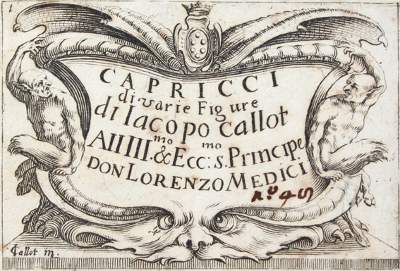 1
CAPRICCI
di varie Figure
di Iacopo Callot
All Ill.mo & Ecc:mo s. Principe
DON LORENZO MEDICI
Callot In.